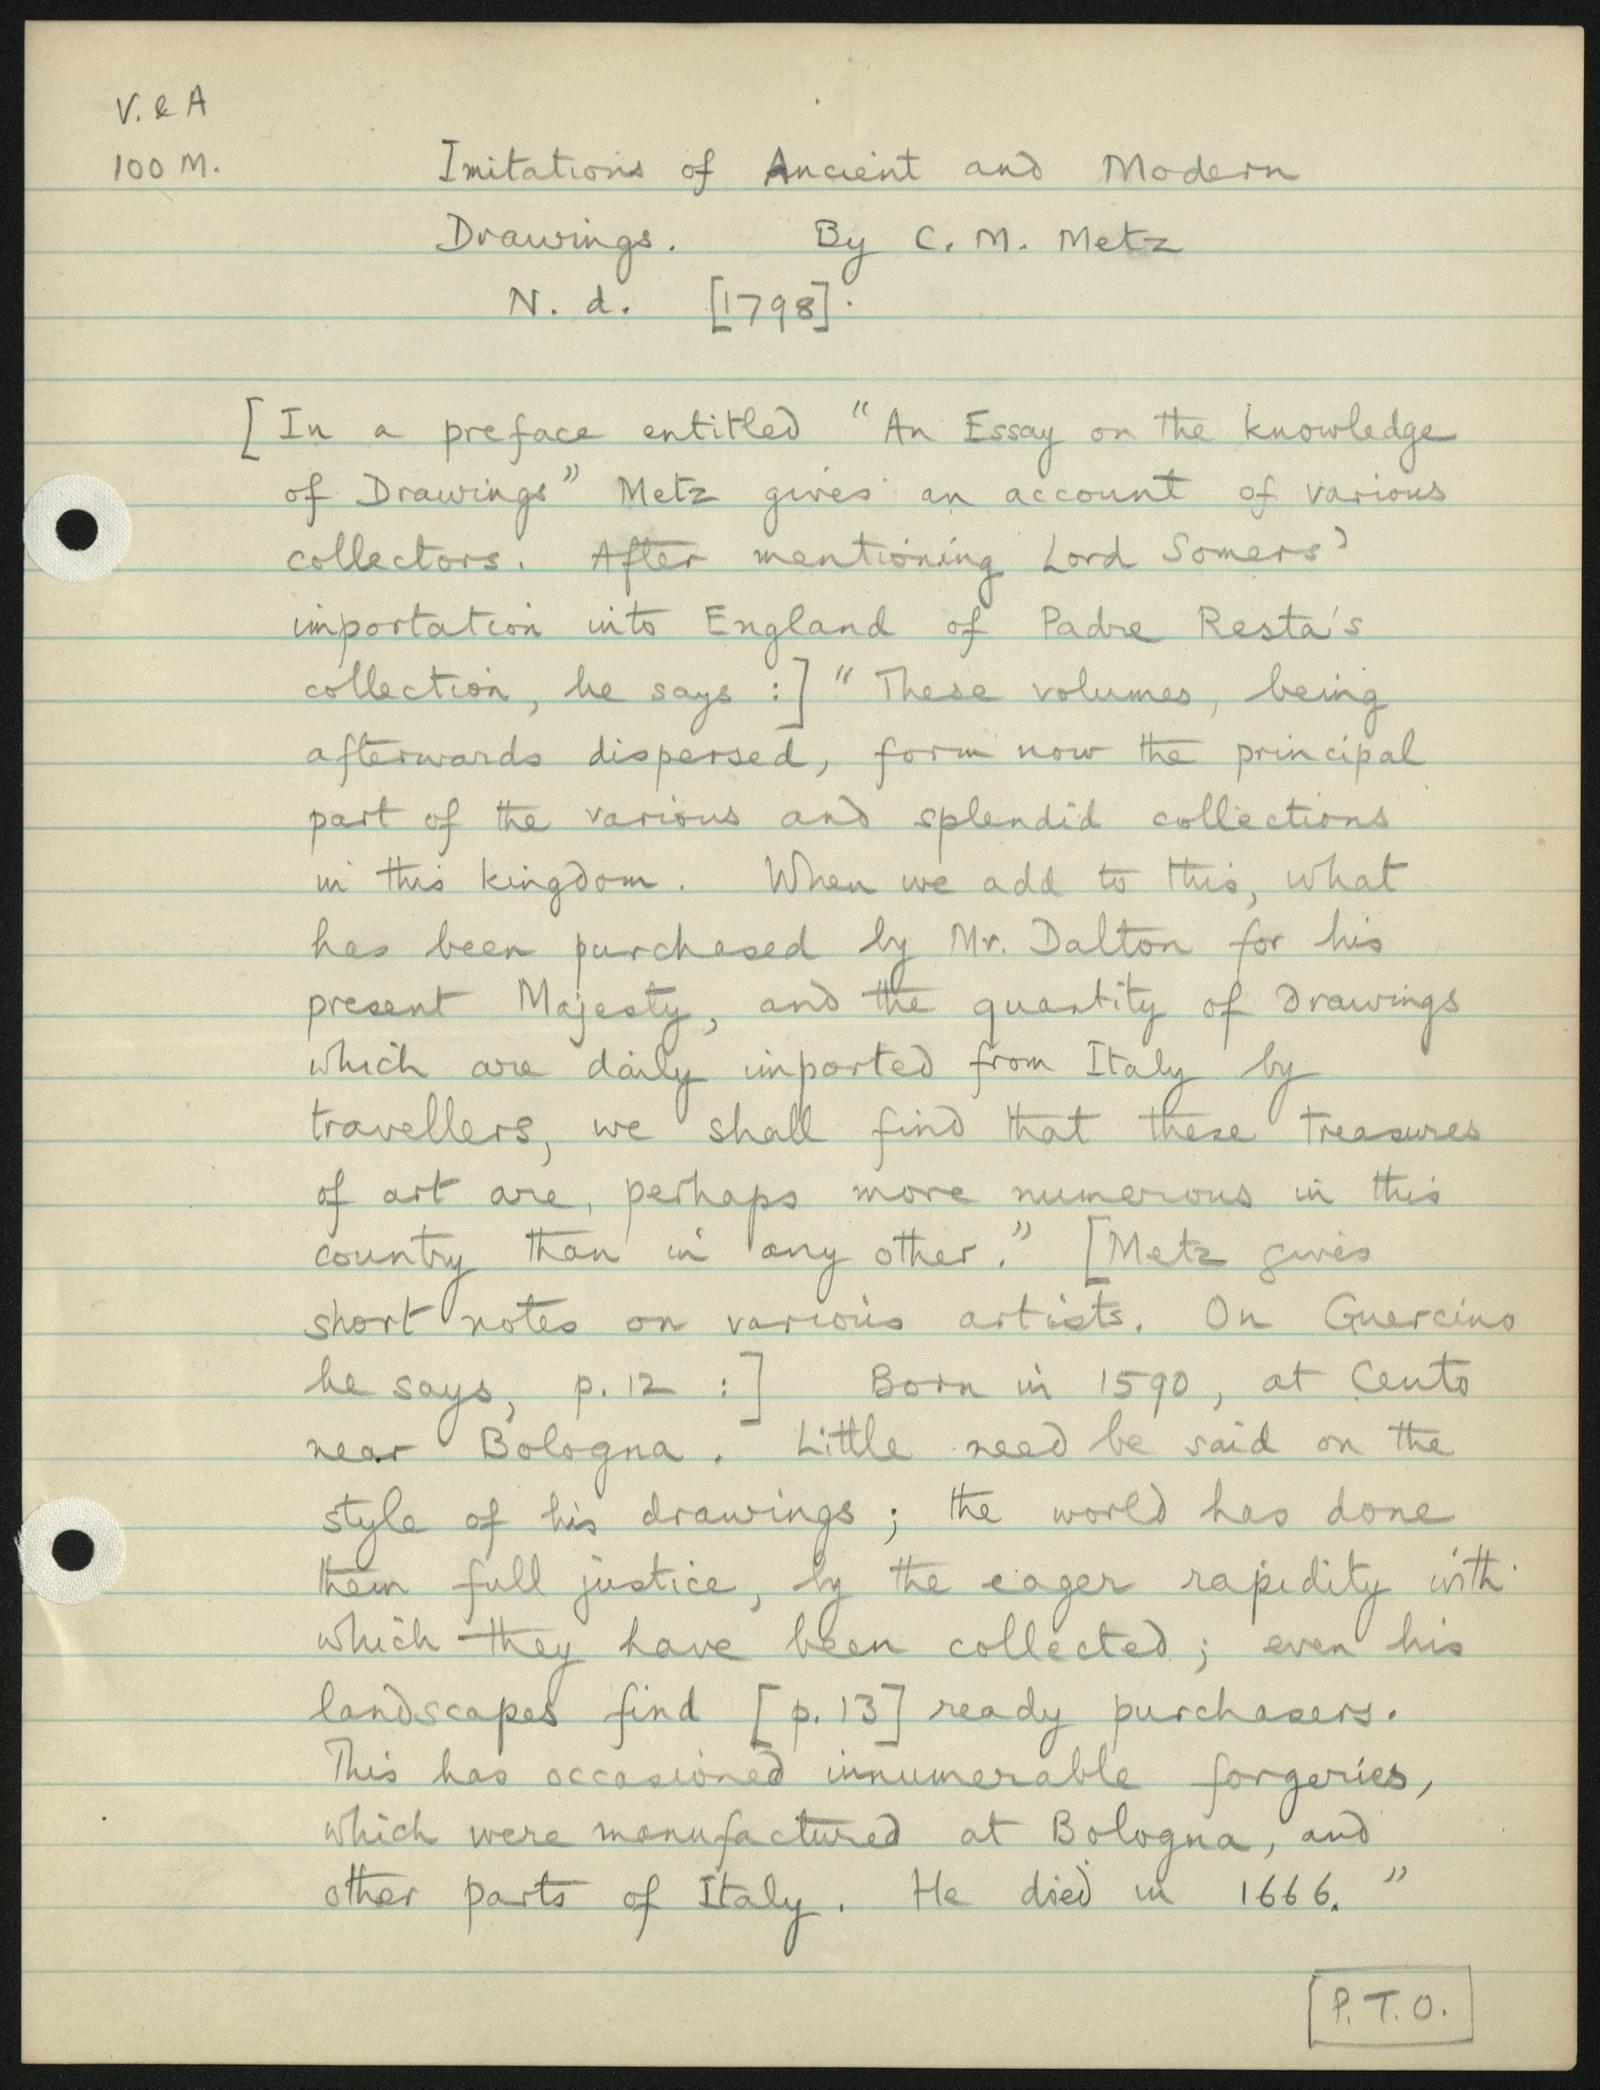 V. & A
100 M.
Imitations of Ancient and Modern
Drawings. By C. M. Metz
N. d. [1798].
[In a preface entitled "An Essay on the knowledge
of Drawings" Metz gives an account of various
collectors. After mentioning Lord Somers'
importation into England of Padre Resta's
collection, he says :] "These volumes, being
afterwards dispersed, form now the principal
part of the various and splendid collections
in this kingdom. When we add to this, what
has been purchased by Mr. Dalton for his
present Majesty, and the quantity of drawings
which are daily imported from Italy by
travellers, we shall find that these treasures
of art are, perhaps more numerous in this
country than in any other." [Metz gives
short notes on various artists. On Guercino
he says, p. 12 :] Born in 1590, at Cento
near Bologna. Little need be said on the
style of his drawings; the world has done
them full justice, by the eager rapidity with
which they have been collected; even his
landscapes find [p. 13] ready purchasers.
This has occasioned innumerable forgeries,
which were manufactured at Bologna, and
other parts of Italy. He died in 1666."
P.T.O.